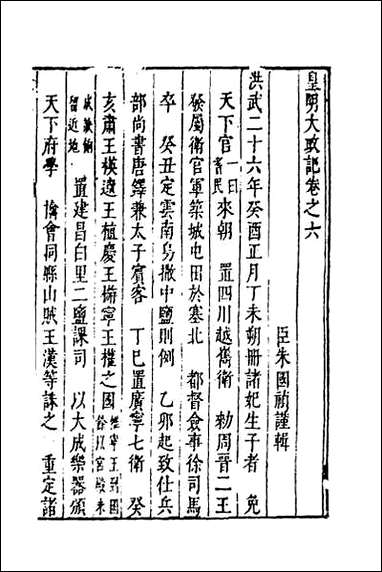 皇明大政記卷之六
臣朱國禎謹輯
洪武二十六年癸酉正月丁未朔冊諸妃生子者 免
天下官一日耆民來朝 置四川越雋衛 勑周晉二王
發屬衛官軍築城屯田於塞北 都督僉事徐司馬
卒 癸丑定雲南烏撒中鹽則例 乙卯起致仕兵
部尚書唐鐸兼太子賓客 丁巳置廣寧七衛 癸
亥肅王楧遼王植慶王㮵寧王權之國惟寧王到國
留近地 置建昌白里二鹽課司 以大成樂器頒
天下府學 擒會同縣山賊王漢等誅之 重定諸